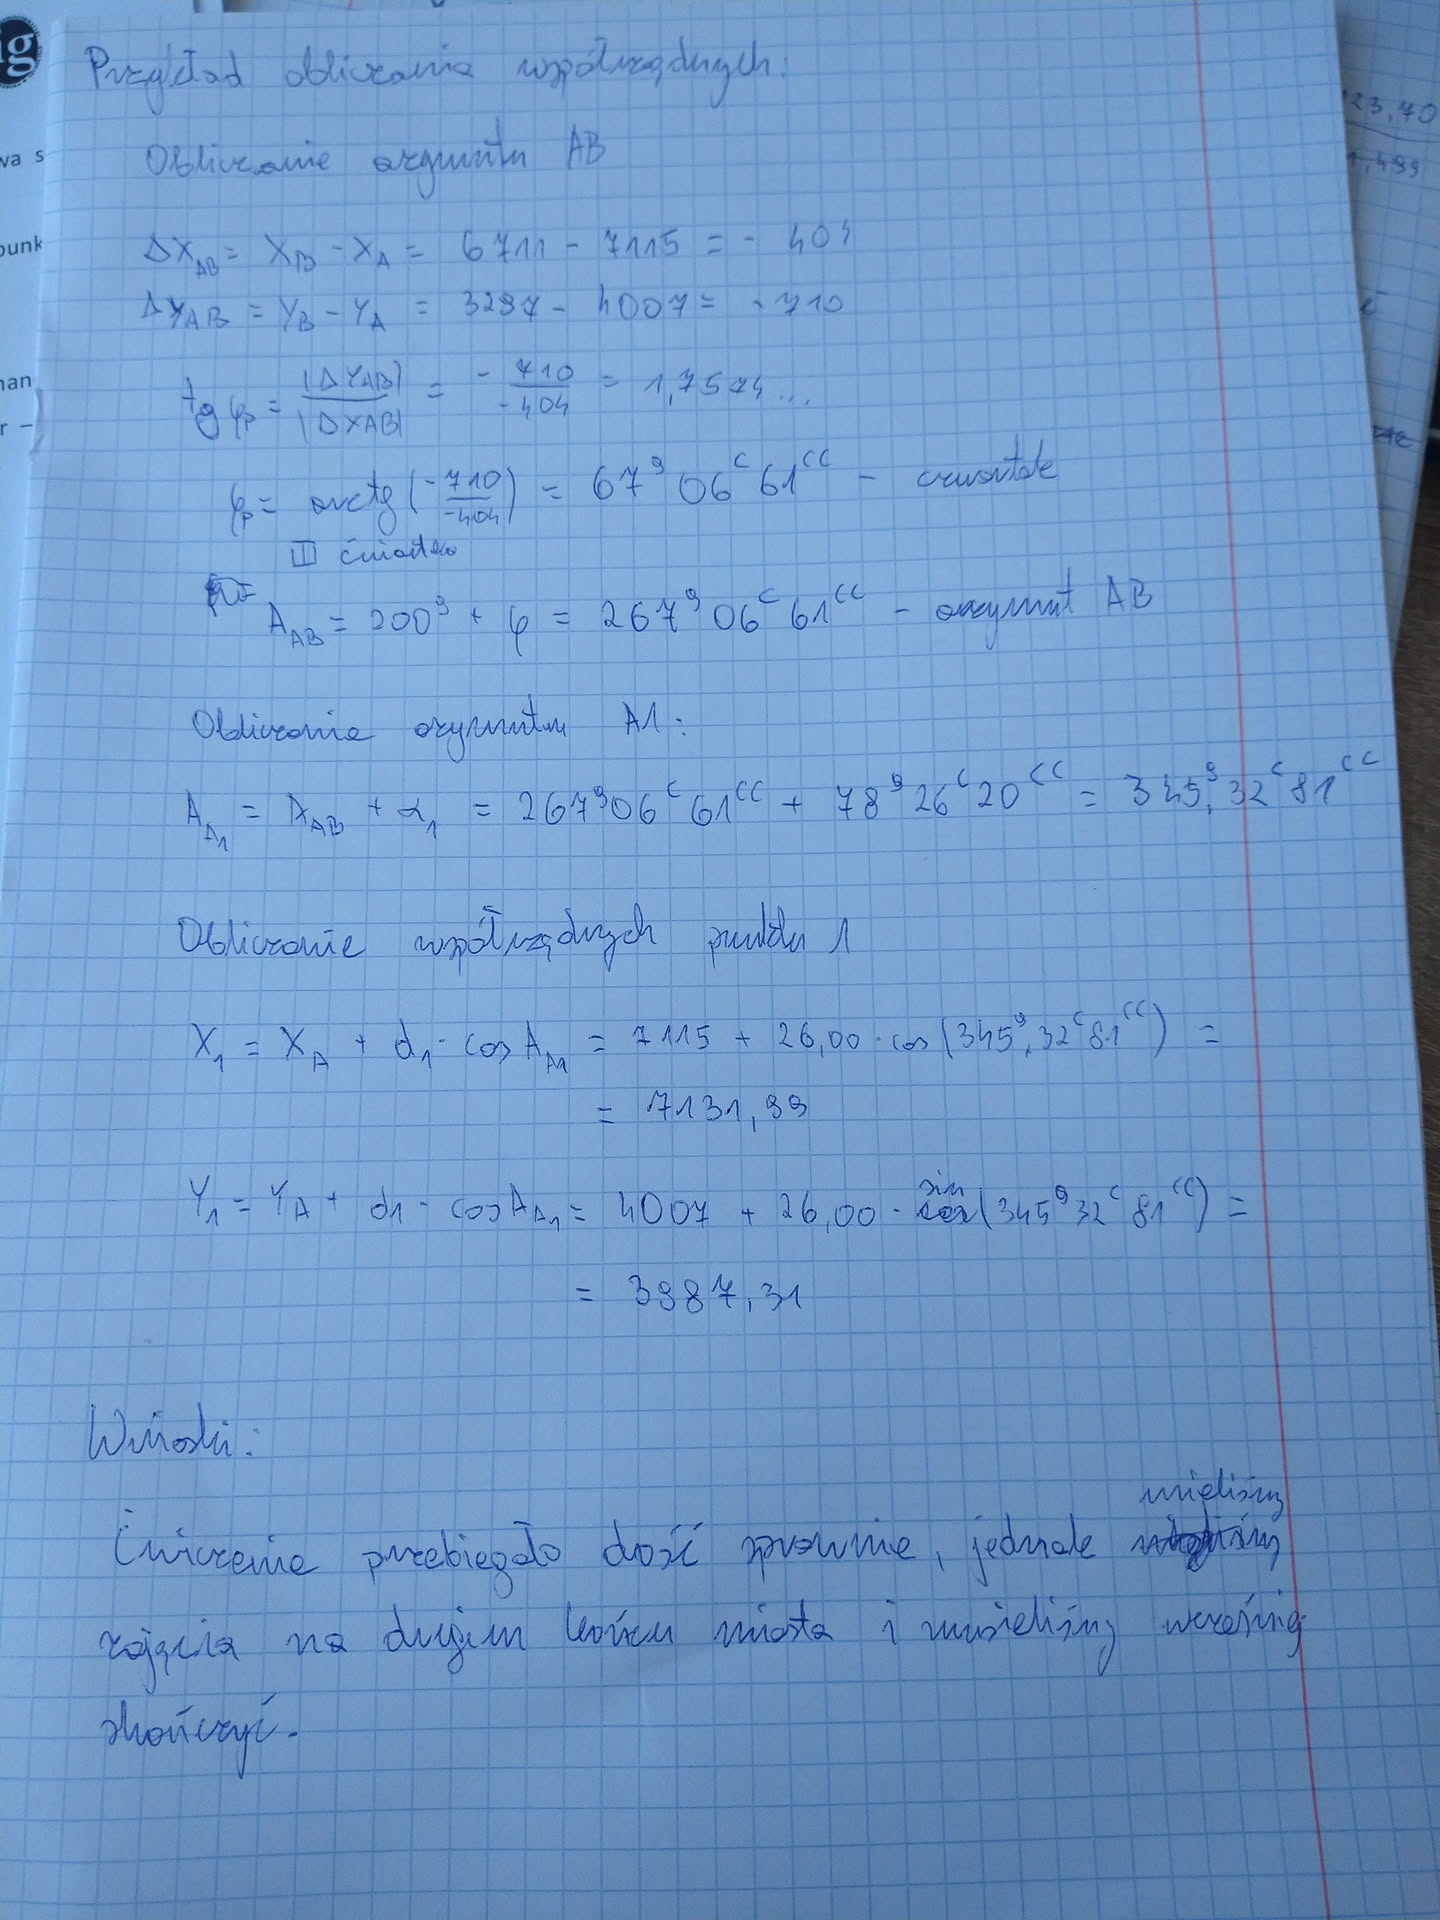 ig
Przykład obliczania współrzędnych:
wa s
Obliczanie azymutu AB
23,70
1,499
punk
ΔX_AB = X_B - X_A = 6711 - 7115 = - 404
ΔY_AB = Y_B - Y_A = 3297 - 4007 = - 710
tg φ_P = |ΔY_AB| / |ΔX_AB| = -710 / -404 = 1,7574...
φ_P = arctg (-710 / -404) = 67^g 06^c 61^cc - czwartak
III ćwiartka
A_AB = 200^g + φ = 267^g 06^c 61^cc - azymut AB
Obliczanie azymutu A1:
A_A1 = A_AB + α_1 = 267^g 06^c 61^cc + 78^g 26^c 20^cc = 345^g, 32^c 81^cc
Obliczanie współrzędnych punktu 1
X_1 = X_A + d_1 · cos A_A1 = 7115 + 26,00 · cos (345^g, 32^c 81^cc) =
= 7131,99
Y_1 = Y_A + d1 · cos A_A1 = 4007 + 26,00 · sin (345^g 32^c 81^cc) =
= 3987,31
Wnioski:
Ćwiczenie przebiegało dość sprawnie, jednak mieliśmy
zajęcia na drugim końcu miasta i musieliśmy wcześniej
skończyć.